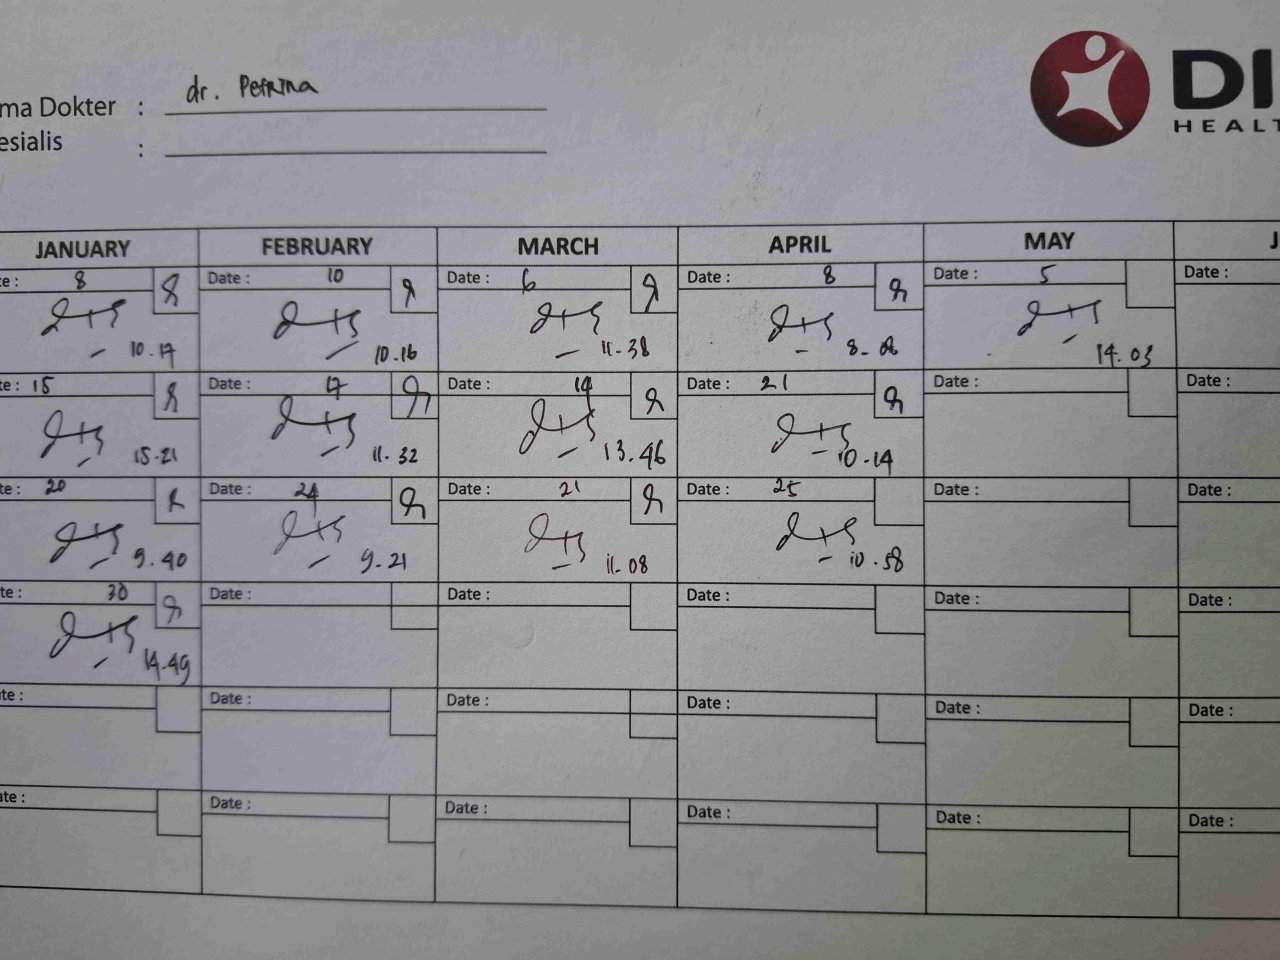 dr. Petrina
ma Dokter :
esialis :
DI
HEALT
JANUARY FEBRUARY MARCH APRIL MAY J
te : 8 Date : 10 Date : 6 Date : 8 Date : 5 Date :
10.17 10.16 11.38 8.08 14.03
te : 15 Date : 17 Date : 14 Date : 21 Date : Date :
15.21 11.32 13.46 10.14
te : 20 Date : 24 Date : 21 Date : 25 Date : Date :
9.40 9.21 11.08 10.58
te : 30 Date : Date : Date : Date : Date :
14.49
te : Date : Date : Date : Date : Date :
ate : Date : Date : Date : Date : Date :